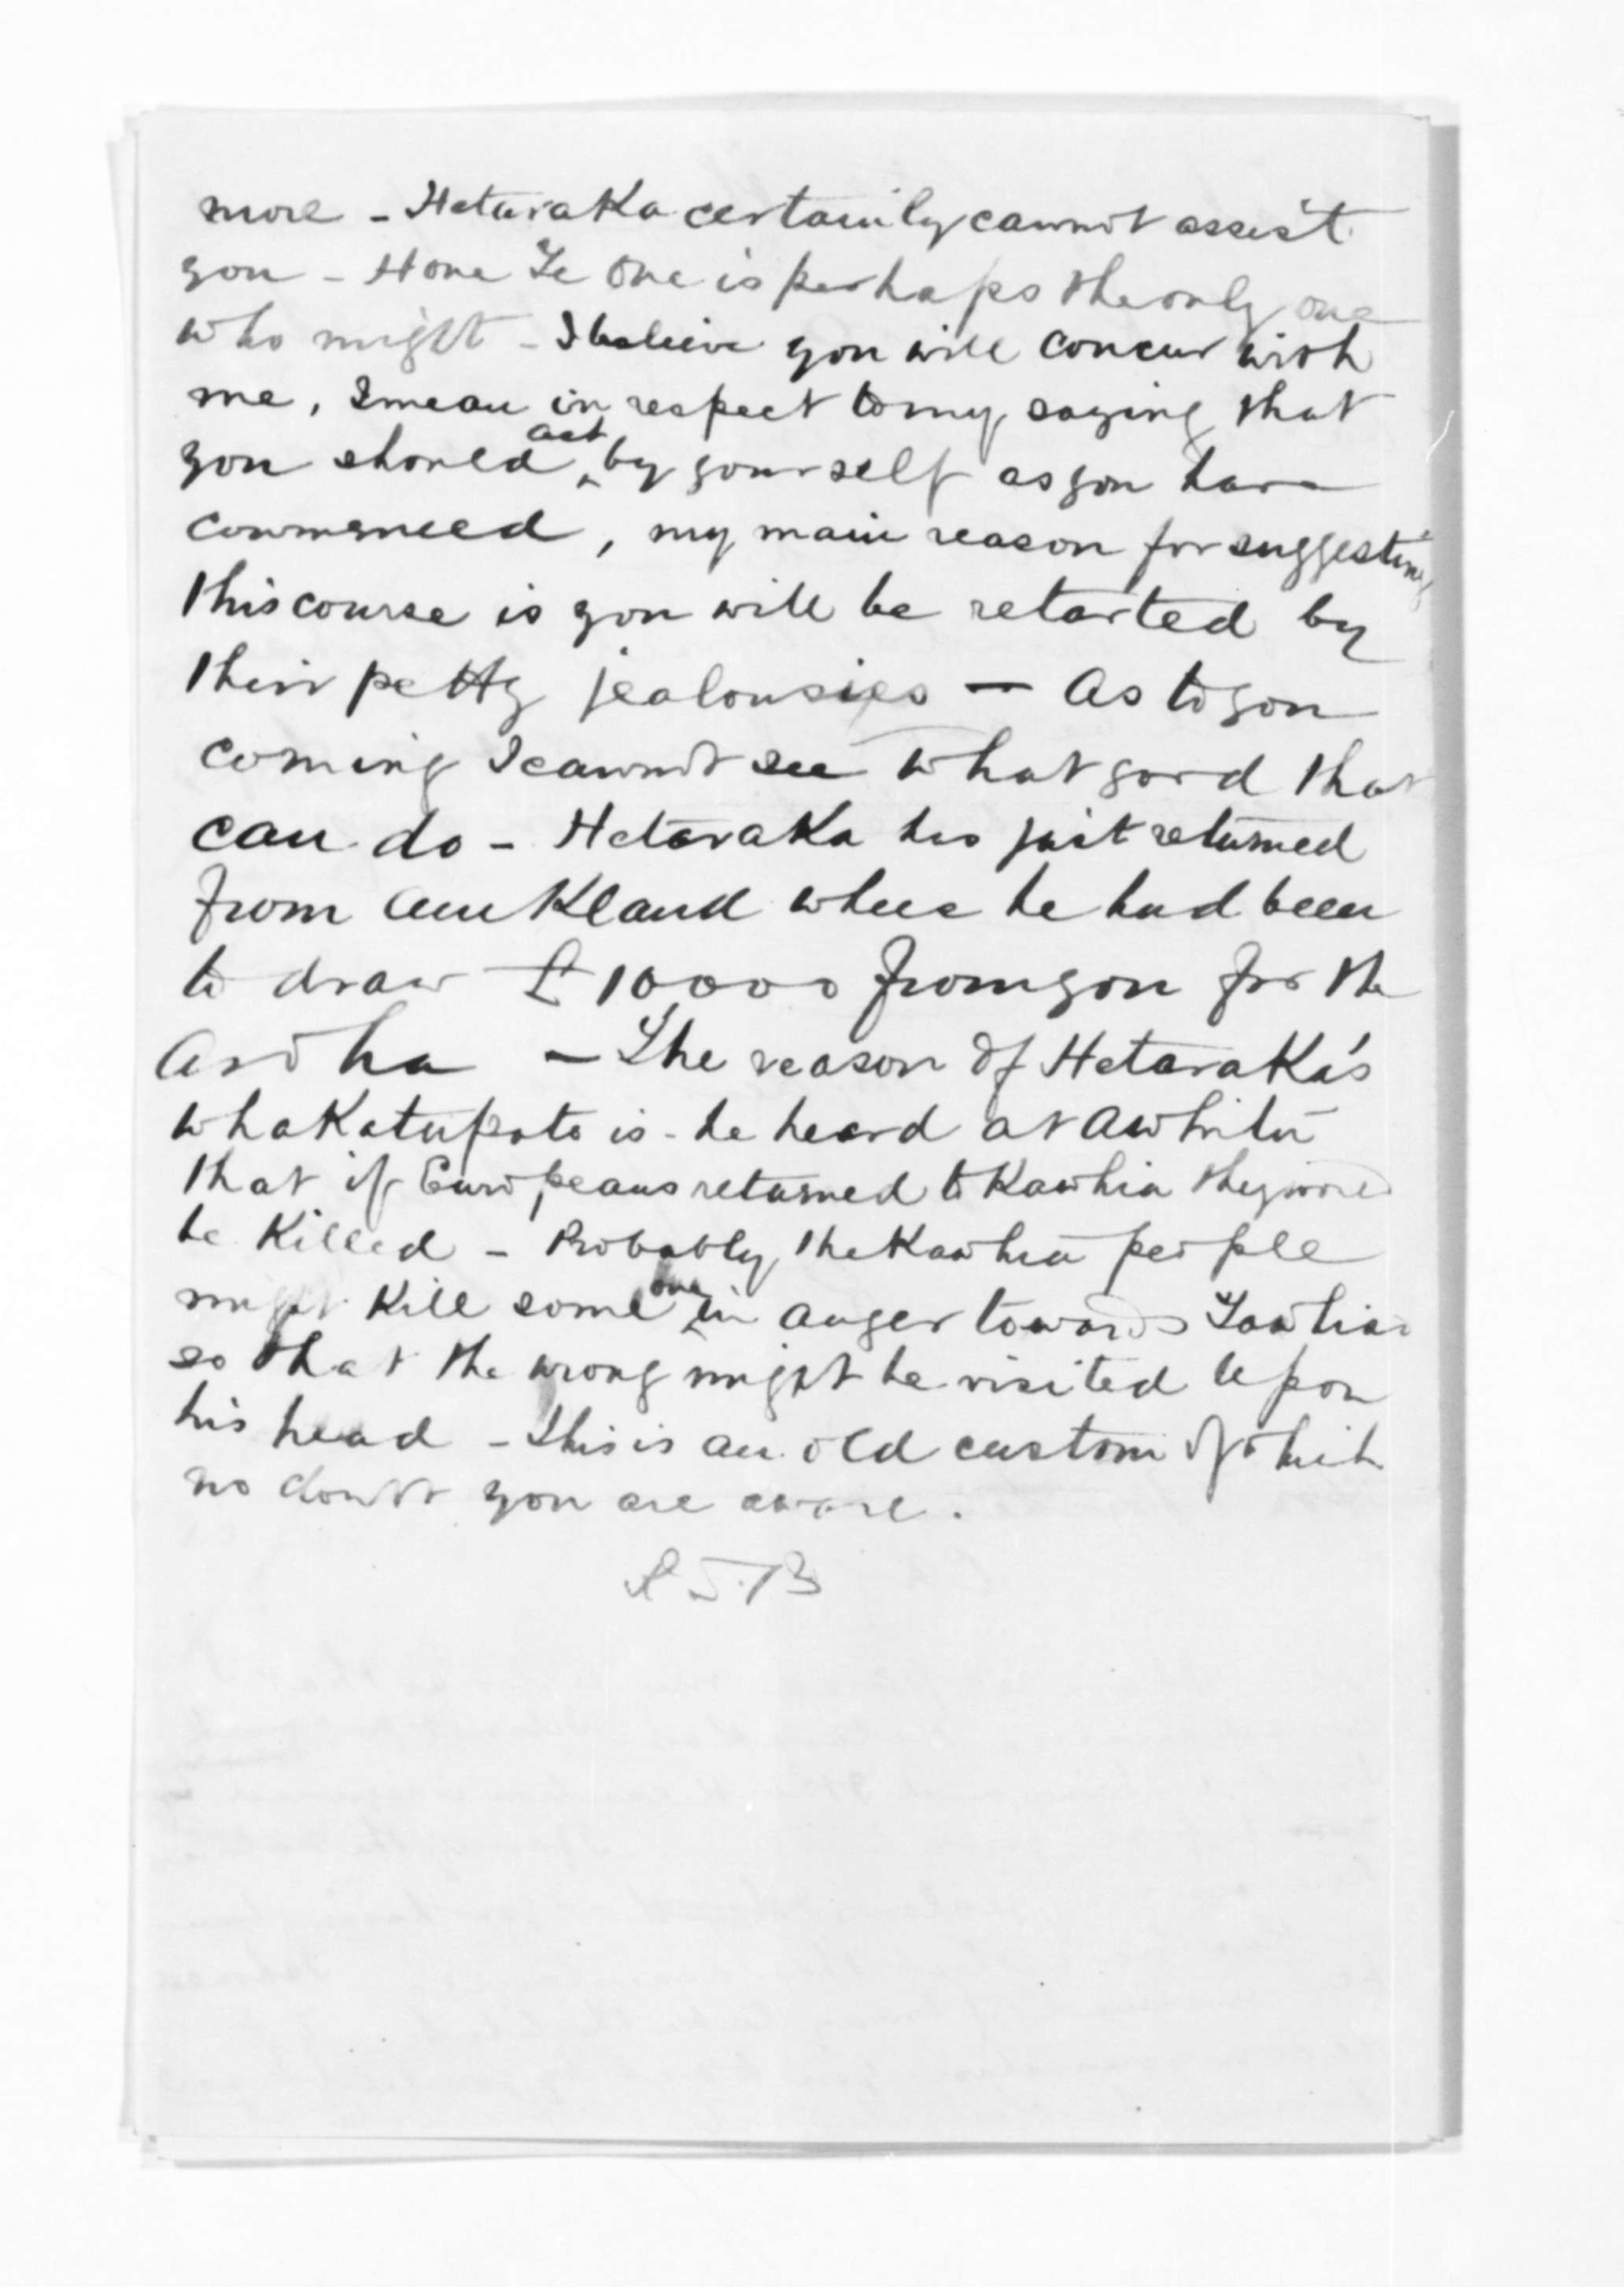 more - Hetaraka certainly cannot assist
you - Hone Te One is perhaps the only one
who might - I believe you will concur with
me, I mean in respect to my saying that
you should act by yourself as you have
commenced, my main reason for suggesting
this course is you will be retarted by
their petty jealousies — As to you
coming I cannot see what good that
can do - Hetaraka has just returned
from Auckland where he had been
to draw £10000 from you for the
Aroha - The reason of Hetaraka's
whakatupato is - he heard at Awhitu
that if Europeans returned to Kawhia they would
be killed - Probably the Kawhia people
might kill some one in anger towards Tawhiao
so that the wrong might be visited upon
his head - this is an old custom of which
no doubt you are aware.